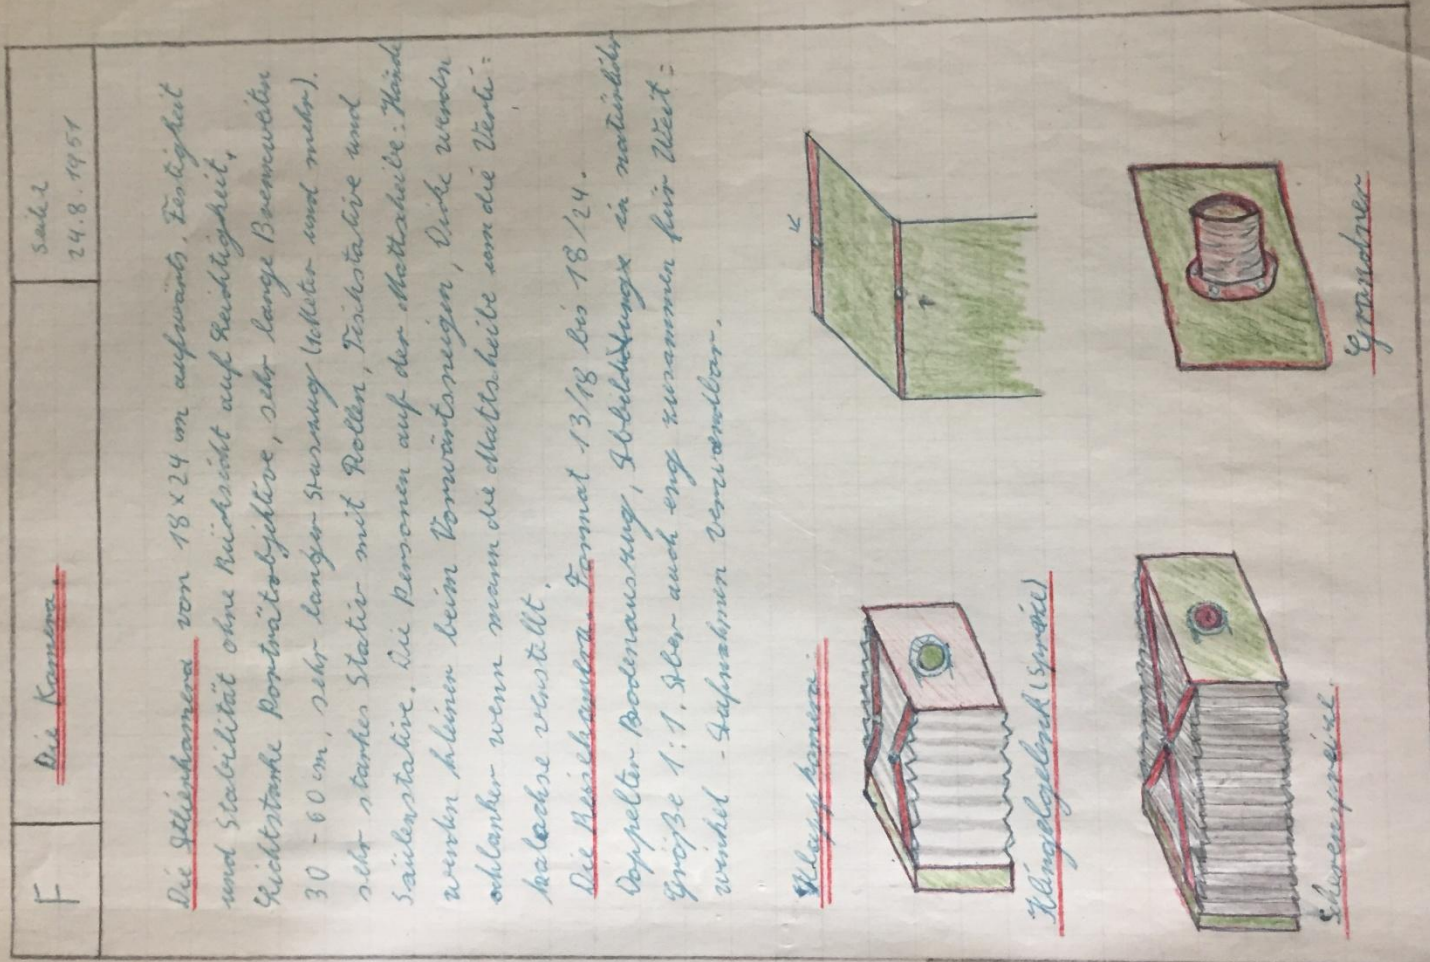 F
Die Kamera.
Seite 2
24.8.1951
Die Atelierkamera von 18 x 24 cm aufwärts, Festigkeit
und Stabilität ohne Rücksicht auf Leichtigkeit.
Lichtstarke Porträtobjektive, sehr lange Brennweiten
30 - 60 cm, sehr langer Auszug (1 Meter und mehr).
sehr starkes Stativ mit Rollen, Tischstative und
Säulenstative. Die Personen auf der Mattscheibe: Hände
werden kleinen beim Vorwärtsneigen, Dicke werden
schlanker wenn mann die Mattscheibe um die Verti=
kalachse verstellt.
Die Reisekamera Format 13/18 bis 18/24.
Doppelter Bodenauszug, Abbildunge in natürlicher
Größe 1:1. Aber auch eng zusammen für Weit=
winkel - Aufnahmen verwendbar.
Klappkamera.
Klingelgelenk (Spreize)
Scherenspreize.